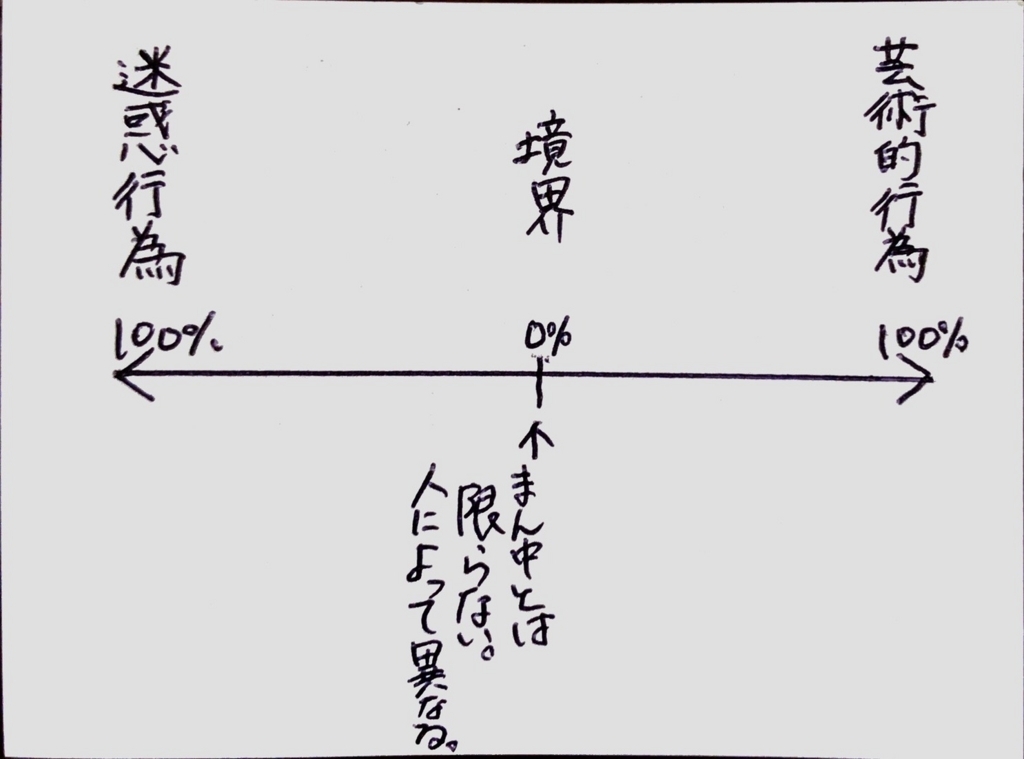 迷惑行為
境界
芸術的行為
100%
0%
100%
↑まん中とは
限らない。
人によって異なる。